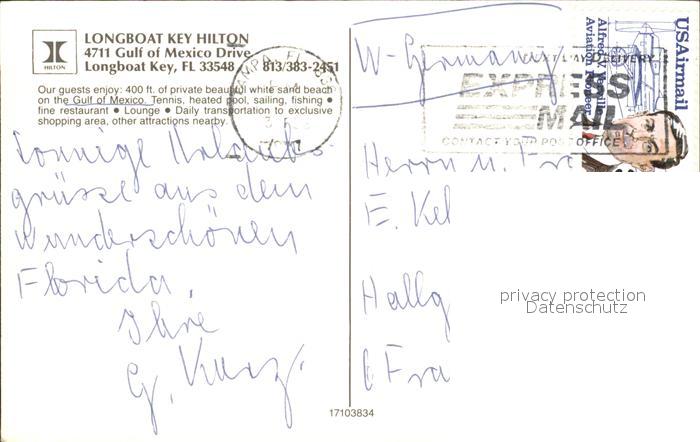 LONGBOAT KEY HILTON
4711 Gulf of Mexico Drive
Longboat Key, FL 33548 813/383-2451
HILTON
Our guests enjoy: 400 ft. of private beautiful white sand beach
on the Gulf of Mexico. Tennis, heated pool, sailing, fishing •
fine restaurant • Lounge • Daily transportation to exclusive
shopping area, other attractions nearby.
Sonnige Urlaubs-
grüsse aus dem
wunderschönen
Florida,
Ihre
G. Kurz.
W-Germany
USAirmail
Alfred V. Verville
Aviation Pioneer
NEXT DAY DELIVERY
EXPRESS
MAIL
CONTACT YOUR POST OFFICE
Herrn u. Fra
E. Kel
Hallg
Fra
privacy protection
Datenschutz
17103834